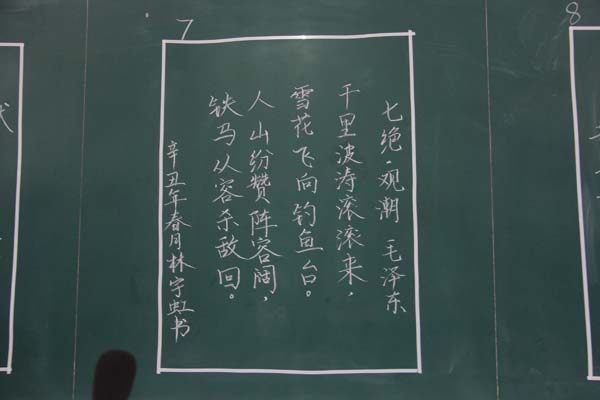 7
七绝·观潮 毛泽东
千里波涛滚滚来，
雪花飞向钓鱼台。
人山纷赞阵容阔，
铁马从容杀敌回。
辛丑年春月林宇虹书
8